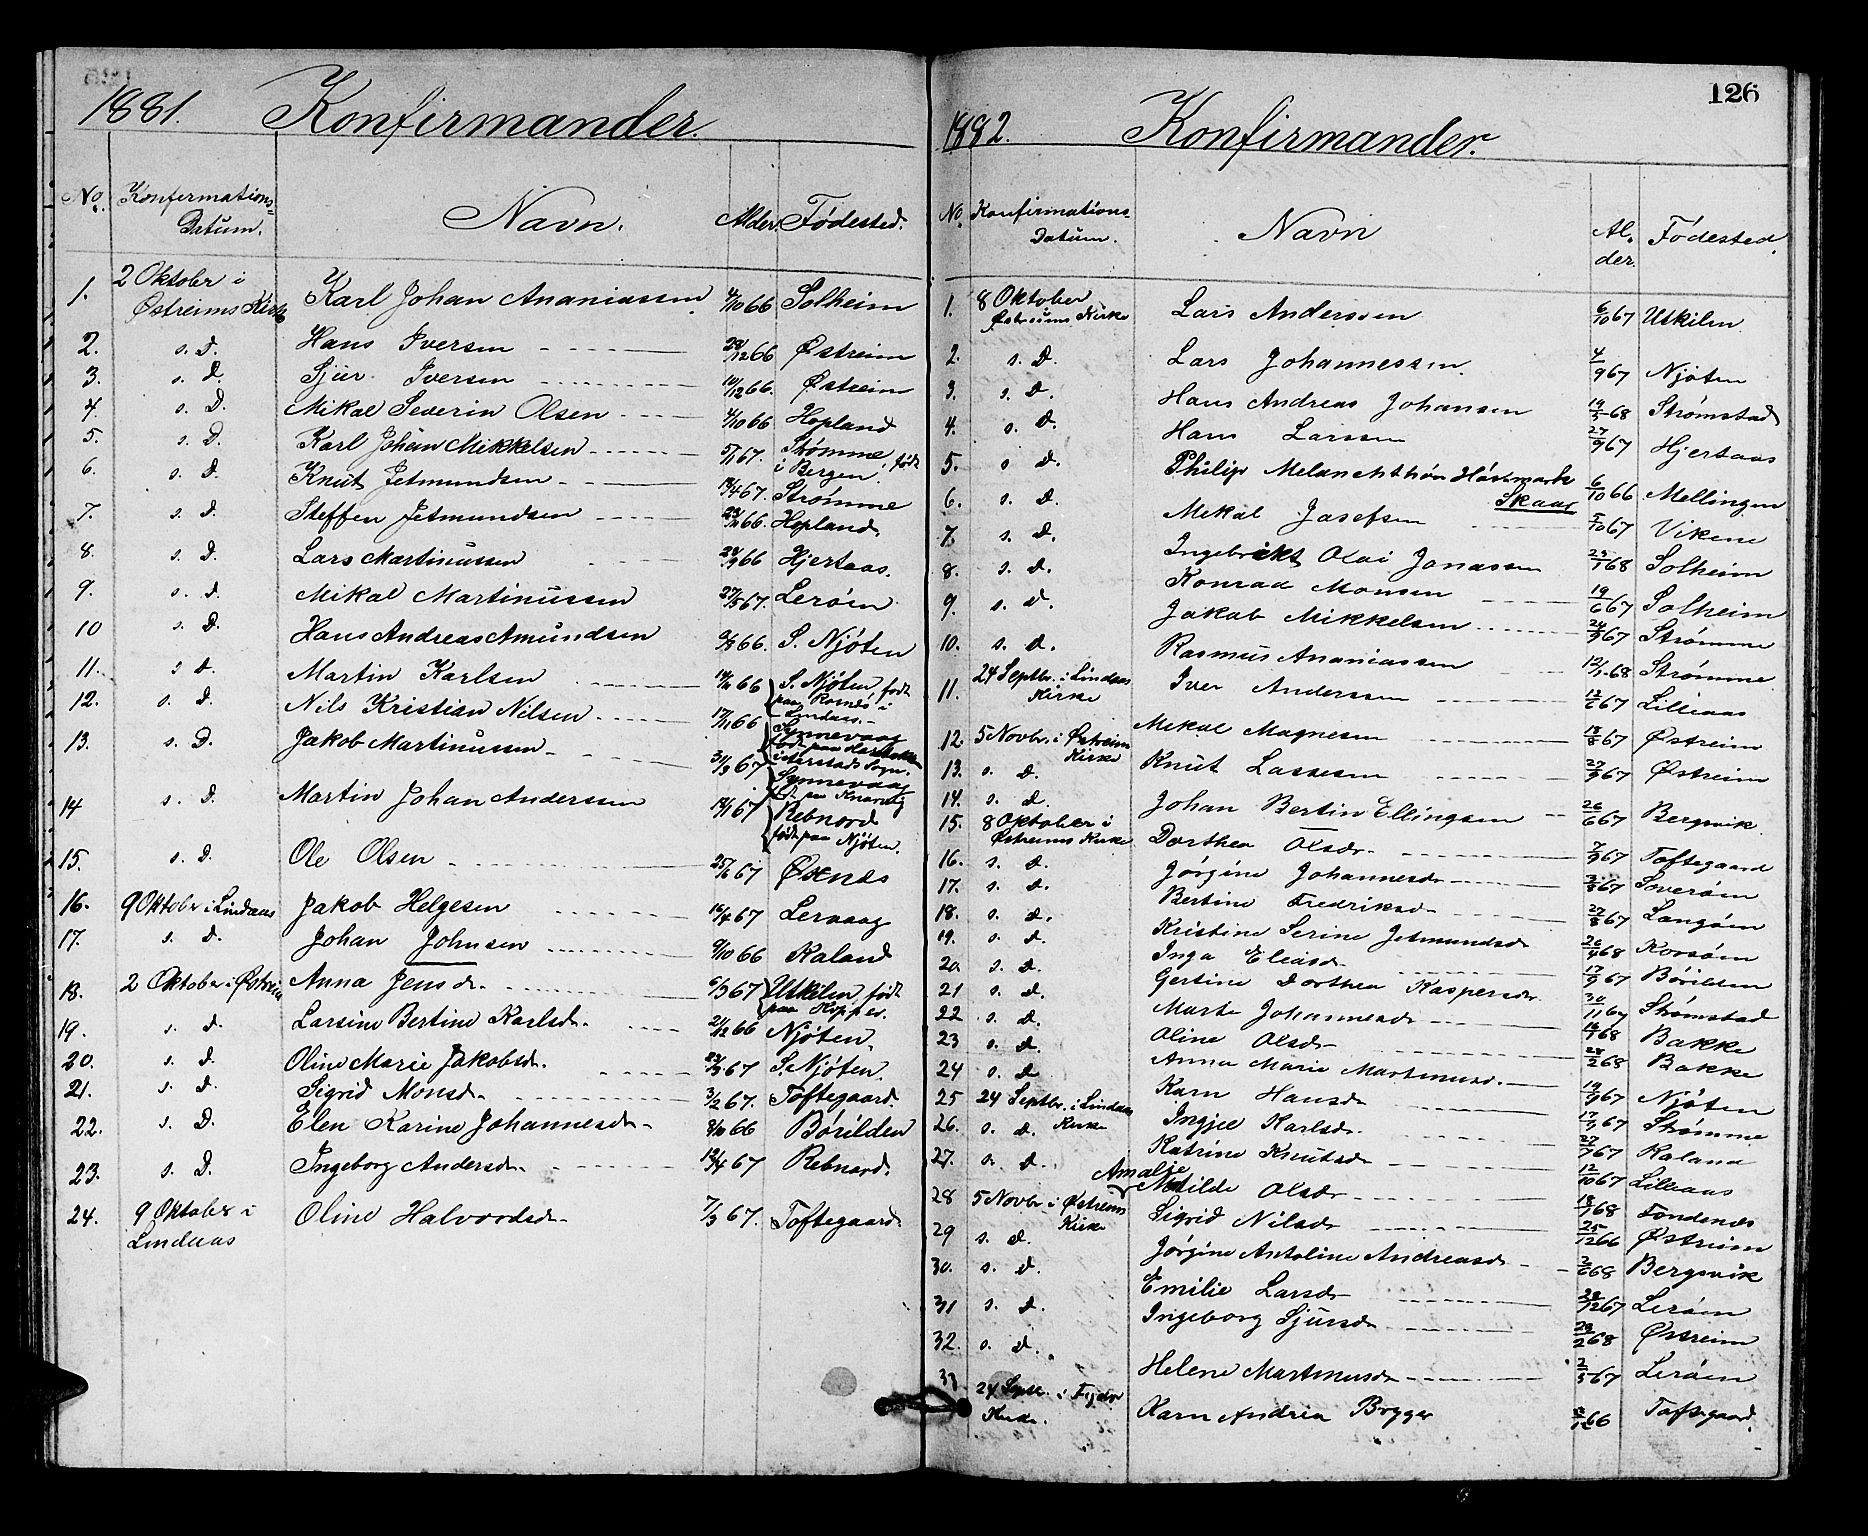 1881. Konfirmander.
No. Konfermations= Datum. Navn. Alder. Fødested.
1. 2 Oktober i Østreims Kirke Karl Johan Ananiassen 4/10 66 Solheim
2. s. D. Hans Iversen 28/12 66 Østreim
3. s. D. Sjur Iversen 10/12 66. Østreim
4. s. D. Mikal Severin Olsen 4/10 66 Hopland
5. s. D. Karl Johan Mikkelsen 5/1 67. Strømme, født i Bergen.
6. s. D. Knut Jetmundsen 18/4 67. Strømme
7. s. D. Steffen Jetmundsen 66. Hopland.
8. s. D. Lars Martinussen 28/9 66 Hjertaas.
9. s. D. Mikal Martinussen 27/5 67. Lerøen
10 s. D. Hans Andreas Amundsen 66. S. Njøten
11. s D. Martin Karlsen 66 S. Njøten, født paa Rosnes i Lindaas.
12. s. D. Nils Kristian Nilsen 17/11 66 Synnevaag født paa i Herstads Sogn.
13. s. D. Jakob Martinussen 31/3 67 Synnevaag f. paa Knarvig
14 s. D. Martin Johan Anderssen 67 Rebnord født paa Njøten
15. s. D. Ole Olsen 25/6 67 Øxnes
16. 9 Oktober i Lindaas Jakob Helgesen 16/4 67 Lervaag
17. s. D. Johan Johnsen 9/10 66 Kaland
18. 2 Oktober i Østreim Anna Jensdr. 6/3 67 Utkilen, født paa Hoppes.
19. s. D. Larsine Bertine Karlsdr. 21/12 66 Njøten.
20. s. D. Oline Marie Jakobsdr. 67 S. Njøten.
21. s. D. Sigrid Monsdr. 3/2 67. Toftegaard.
22. s. D. Elen Karine Johannesdr. 8/10 66 Børilden
23. s. D. Ingeborg Andersdr. 12/4 67 Rebnord.
24. 9 Oktober i Lindaas Oline Halvordsdr. 7/3 67. Toftegaard
126
1882. Konfirmander.
No. Konfirmations Datum. Navn Al-der. Fødested
1. 8 Oktober Østreims Kirke Lars Anderssen 6/10 67 Utkilen
2. s. D. Lars Johannessen 4/9 67 Njøten
3. s. D. Hans Andreas Johansen 19/3 68 Strømstad
4. s. D. Hans Larssen 27/9 67 Hjertaas
5. s D. Philip Melanchthon Skaar 6/10 66 Mellingen
6. s. D. Mekal Josefsen 5/10 67 Vikene
7. s. D. Ingebrikt Olai Jonassen 25/1 68 Solheim
8. s. D. Konrad Monsen 19/6 67 Solheim
9. s. D. Jakob Mikkelsen 24/9 67 Strømme
10. s. D. Rasmus Ananiassen 12/1 68 Strømme
11. 24 Septbr. i Lindaas Kirke Iver Anderssen 12/6 67 Lilleaas
12. 5 Novbr. i Østreim Kirke Mekal Magnesen 18/8 67 Østreim
13. s. D. Knut Lassesen 27/9 67 Østreim
14. s. D. Johan Bertin Ellingsen 26/6 67 Bergsvik
15. 8 Oktober i Østreims Kirke Dorthea Olsdr. 7/9 67 Toftegaard
16. s. D. Jørgine Johannesdr. 3/8 67 Soverøen
17. s. D. Bertine Fredriksdr. 27/8 67 Langøen
18. s. D. Kristine Serine Jetmundsdr. 26/4 68 Korsøen
19. s. D. Inga Eliasdr. 17/9 67 Børilsen
20. s. D. Gertine Dorthea Kaspersdr. 30/11 67 Strømstad
21 s. D. Marta Johannesdr. 68 Bakke
22 s. D. Oline Olsdr. 28/2 68 Bakke
23 s. D. Anna Marie Martinusdr. 19/9 67 Njøten
24 s. D. Karn Hansdr. 17/9 67 Strømme
25 24 Septbr. i Lindaas Kirke Ingjel Karlsdr. 27/7 67 Kaland
26. s. D. Katrine Knutsdr. 12/10 67 Lilleaas
27. s. D. Amalie Matilde Olsdr. 18/1 68 Fondenes
28 5 Novbr i Østreims Kirke Sigrid Nilsdr. 25/12 66 Østreim
29 s. D. Jørgine Antoline Andreasdr. 2/6 68 Bergsvik
30. s. D. Emilie Larsdr. 28/12 67 Lerøen
31 s. D. Ingeborg Sjursdr. 29/2 68 Østreim
32. s. D. Helene Martinusdr. 2/5 67 Lerøen
33 24 Septb. i Kirke. Karn Andrea Brygger 66 Toftegaard.